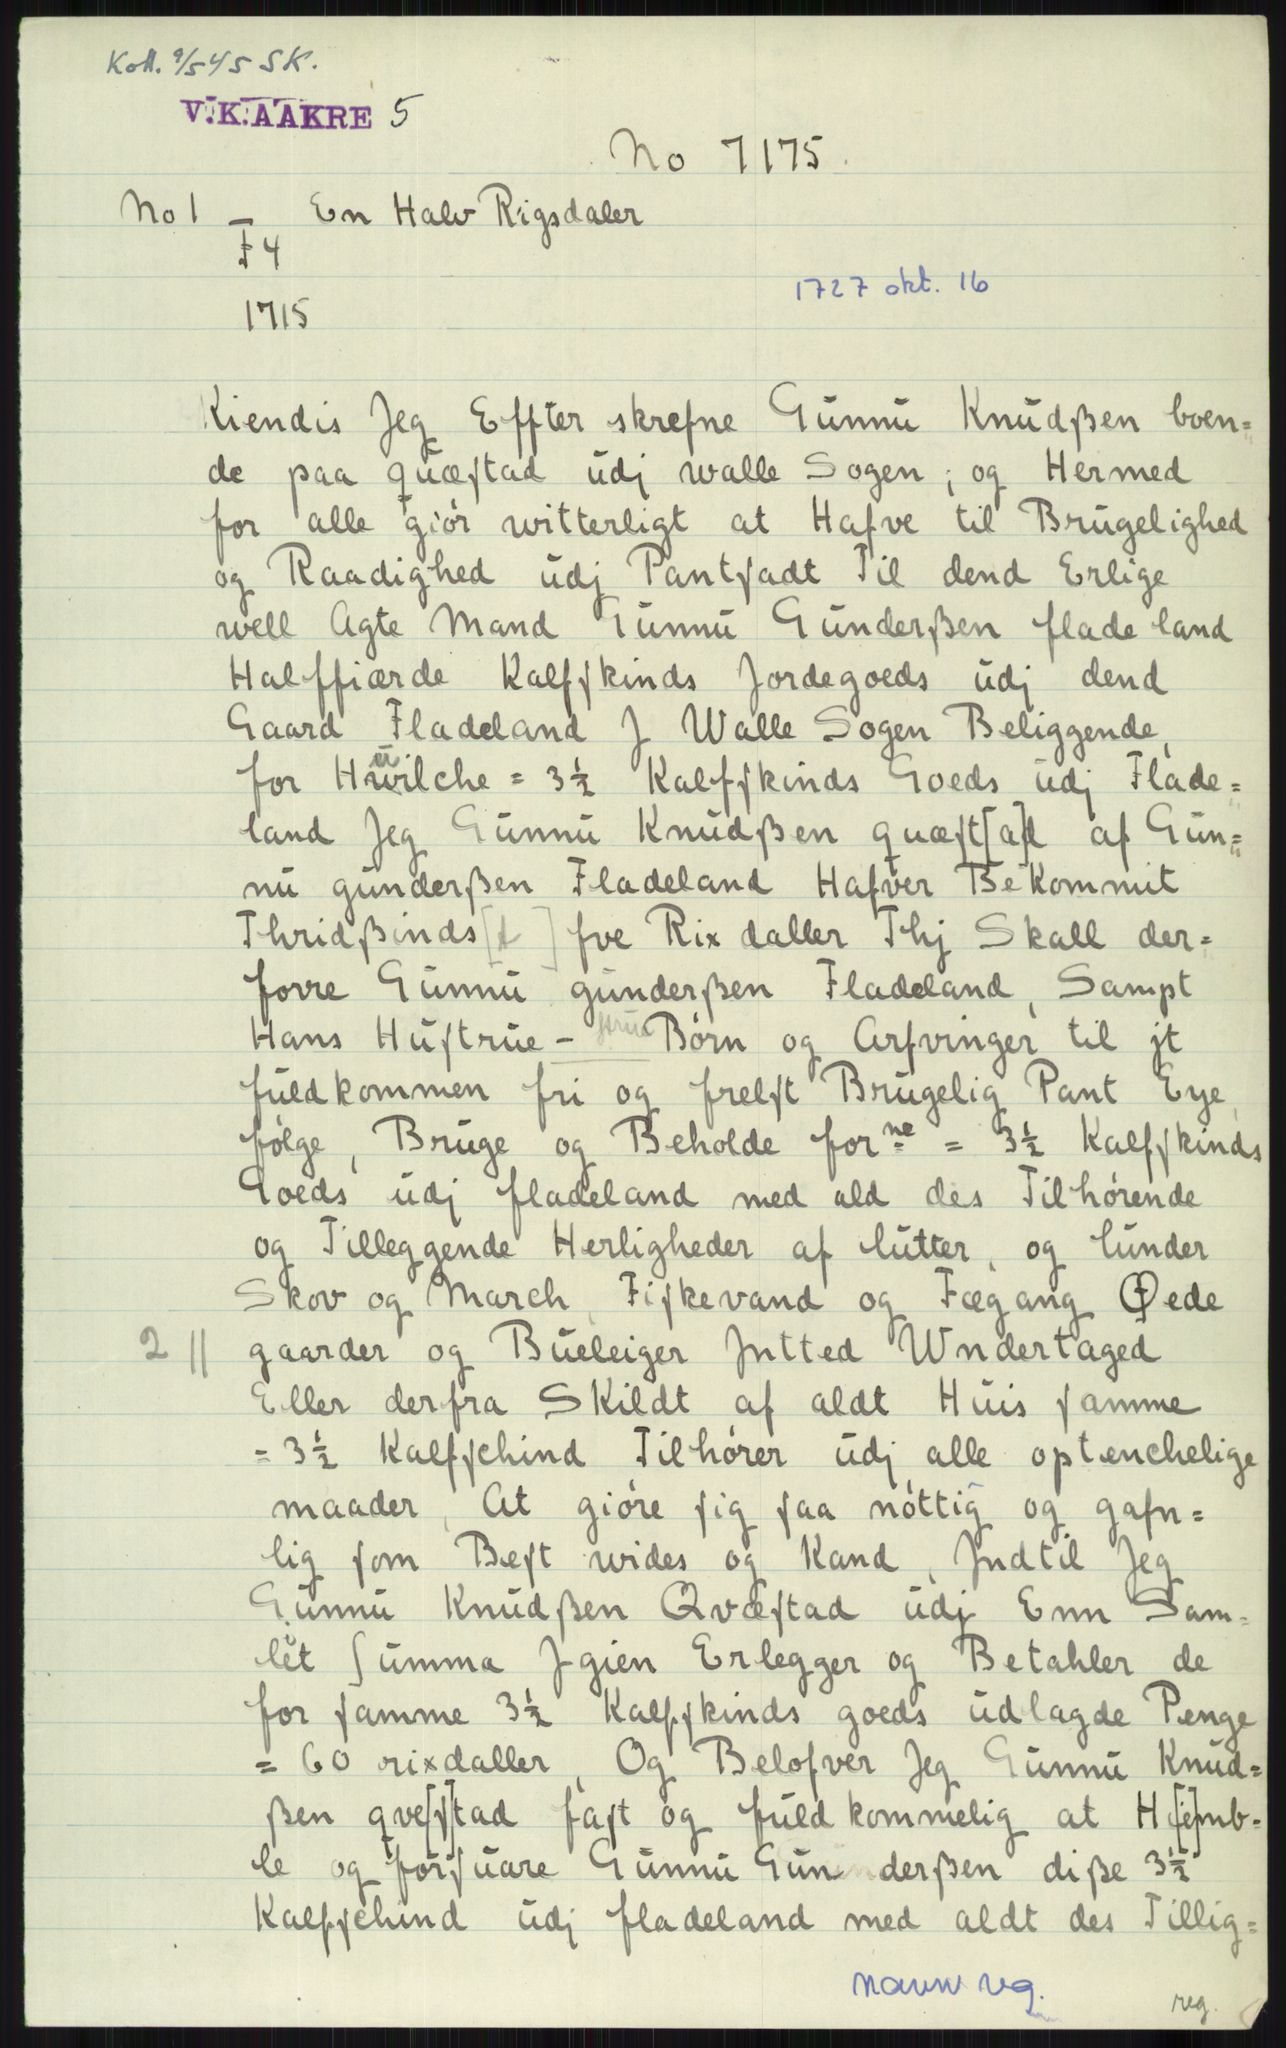 Koll. 9/5 45 SK.
V.K.AAKRE 5
No 7175.
No 1 En Halv Rigsdaler
F 4
1727 okt. 16
1715
Kiendis Jeg Effter skrefne Gunnu Knudßen boen=
de paa quæstad udj walle Sogen, og Hermed
for alle giör witterligt at Hafve til Brugelighed
og Raadighed udj Pantsadt Til dend Erlige
well Agte Mand Gunnu Gunderßen flade land
Halffiærde Kalfskinds Jordegoeds udj dend
Gaard Fladeland J Walle Sogen Beliggende,
for Hwilche = 3½ Kalfskinds Goeds udj Flade=
land Jeg Gunnu Knudßen quæst[a]d af Gun=
nu gunderßen Fladeland Hafver Bekommit
Thridßinds[t ] fve Rix daller Thj Skall der=
forre Gunnu gunderßen Fladeland, Sampt
Hans Hustrue - Börn og Arfvinger til jt
fuldkommen fri og frelst Brugelig Pant Eye,
fölge, Bruge og Beholde forne = 3½ Kalfskinds
Goeds udj fladeland med ald des Tilhörende
og Tilleggende Herligheder af lutter, og lunder
Skov og March, Fiskevand og Fægang Øede
2 || gaarder og Bueleiger Jntted Wndertaged
Eller derfra Skildt af aldt Huis samme
= 3½ Kalfschind Tilhörer udj alle optenchelige
maader, At giöre sig saa nöttig og gafn=
lig som Best wides og Kand, Jndtil Jeg
Gunnu Knudßen Qvæstad udj Enn Sam=
let Summa Jgien Erlegger og Betahler de
for samme 3½ Kalfskinds goeds udlagde Penge
= 60 rixdaller, Og Belofver Jeg Gunnu Knud=
ßen qve[s]tad fast og fuldkommelig at H[je]mb=
le og forsuare Gunnu Gunderßen diße 3½
Kalfschind udj fladeland med aldt des Tillig=
navn reg.
reg.